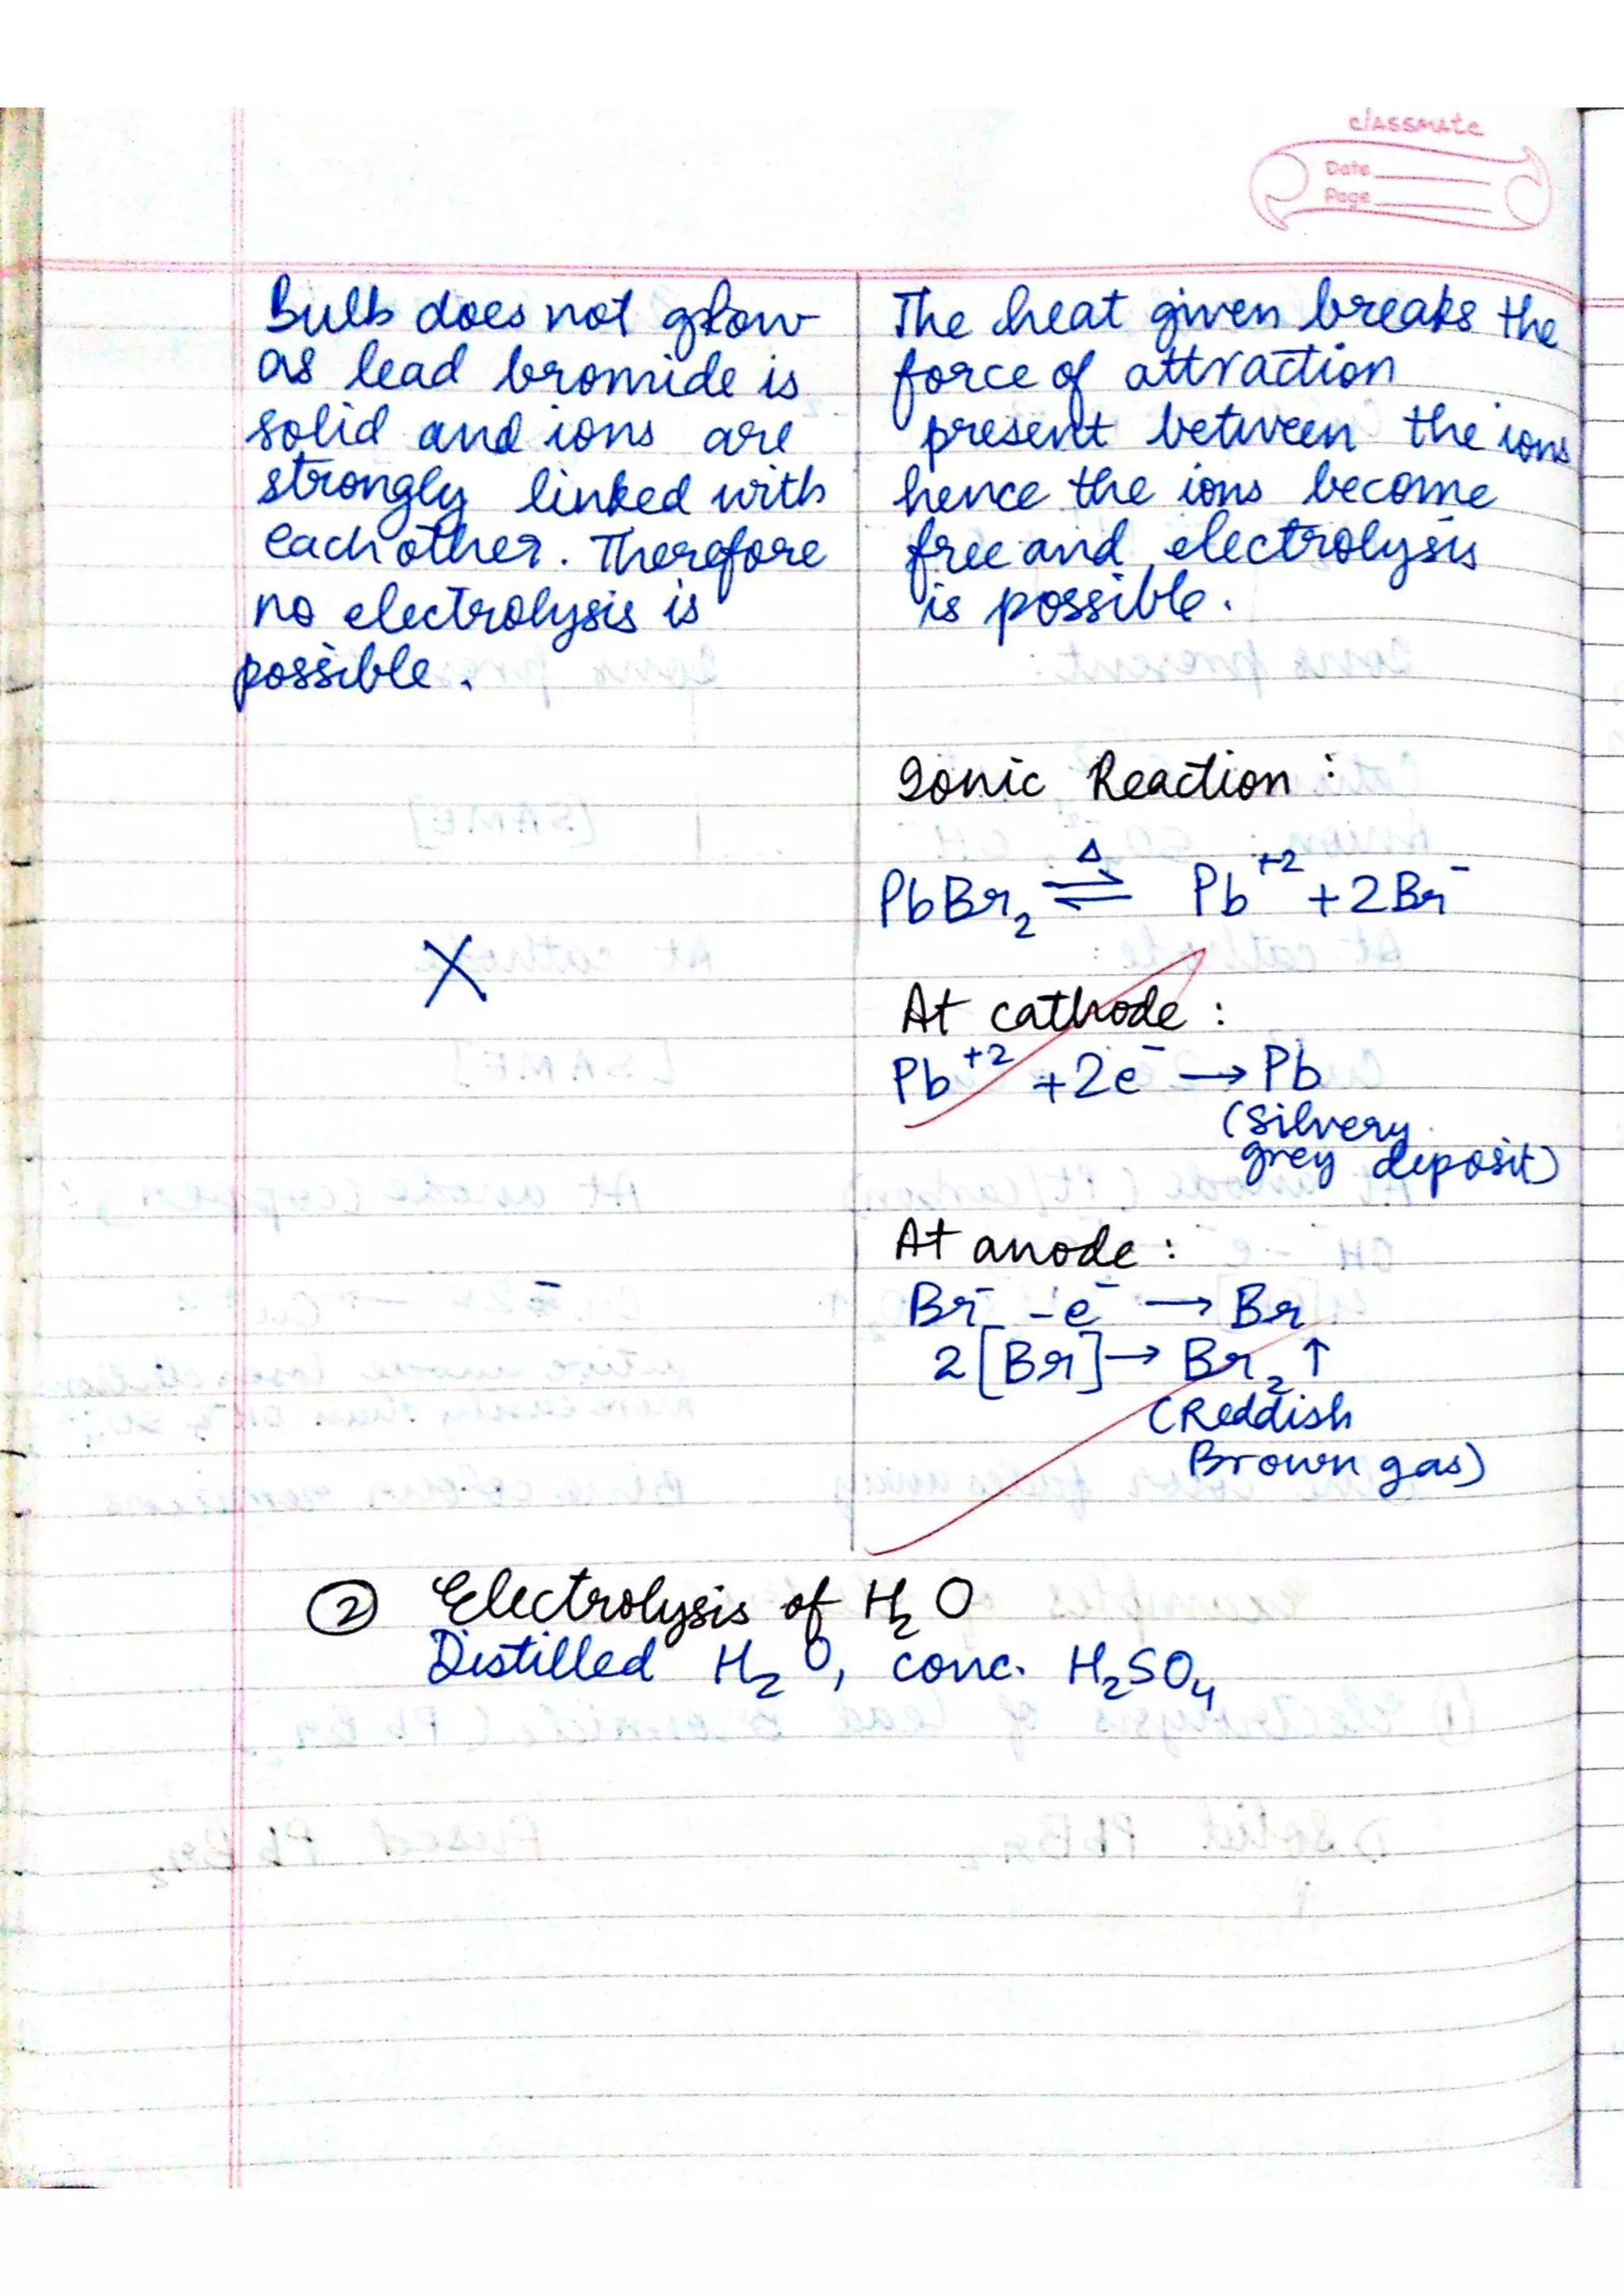 classmate
Date
Page
Bulb does not glow
as lead bromide is
solid and ions are
strongly linked with
each other. Therefore
no electrolysis is
possible.
X
The heat given breaks the
force of attraction
present between the ions
hence the ions become
free and electrolysis
is possible.
Ionic Reaction :
PbBr₂ ⇌ Δ Pb⁺² + 2Br⁻
At cathode :
Pb⁺² + 2e⁻ → Pb
(silvery
grey deposit)
At anode :
Br⁻ - e⁻ → Br
2[Br] → Br₂ ↑
(Reddish
Brown gas)
② Electrolysis of H₂O
Distilled H₂O, conc. H₂SO₄